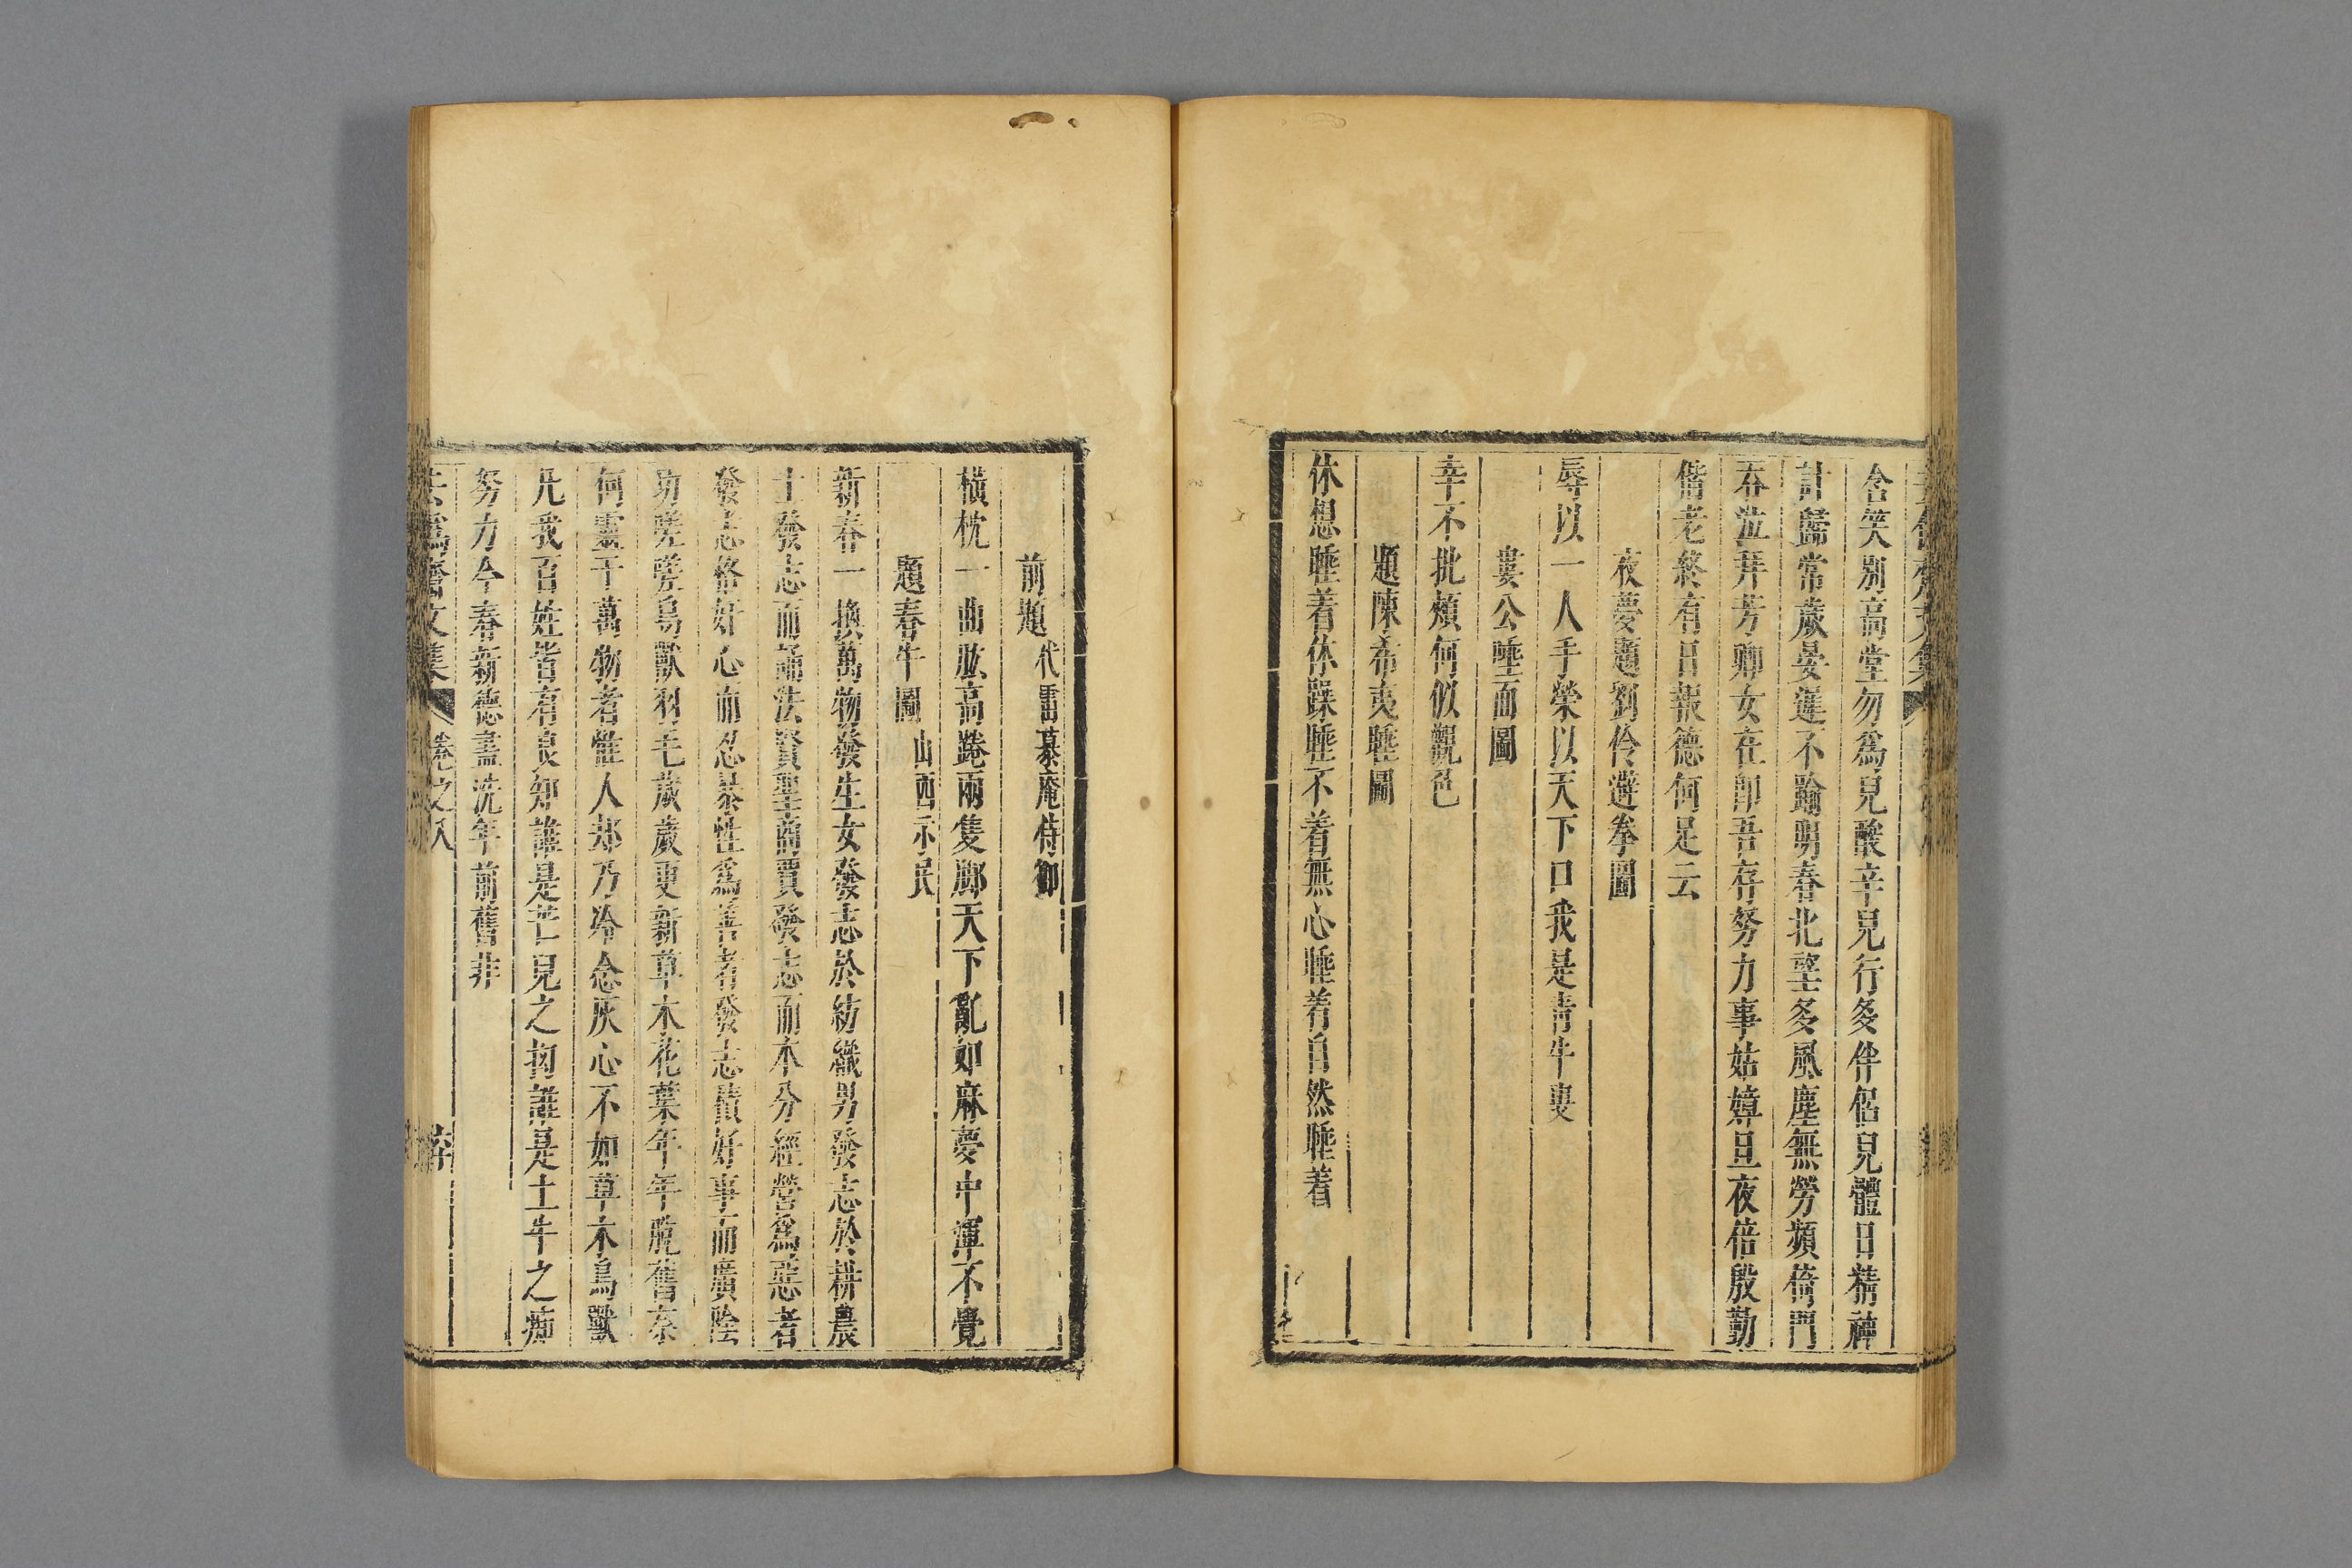 含笑別高堂勿爲兒酸辛兒行多伴侶兒體日精神
計歸常歲晏遲不踰明春北望多風塵無勞頻倚門
吞泣拜芳卿女在卽吾存努力事姑嫜旦夜倍殷勤
偕老終有日報德何足云
夜夢題劉伶遊拳圖
辱以一人手榮以天下口我是青牛叟
婁公唾面圖
幸不批頰何似觀色
題陳希夷睡圖
休想睡着休躁睡不着無心睡着自然睡着
前題 代雷慕庵侍御
橫枕一曲肱高踡兩隻脚天下亂如麻夢中渾不覺
題春牛圖 山西示民
新春一換萬物發生女發志於紡織男發志於耕農
士發志而誦法賢聖商賈發志而本分經營爲惡者
發志格奸心而忍暴性爲善者發志積好事而廣陰
功嗟嗟鳥獸羽毛歲歲更新草木花葉年年脫舊奈
何靈于萬物者惟人却乃冷念灰心不如草木鳥獸
凡我百姓皆有良知誰是芒兒之拗誰是土牛之痴
努力今春新德盡洗年前舊非
去僞齋文集 卷之八